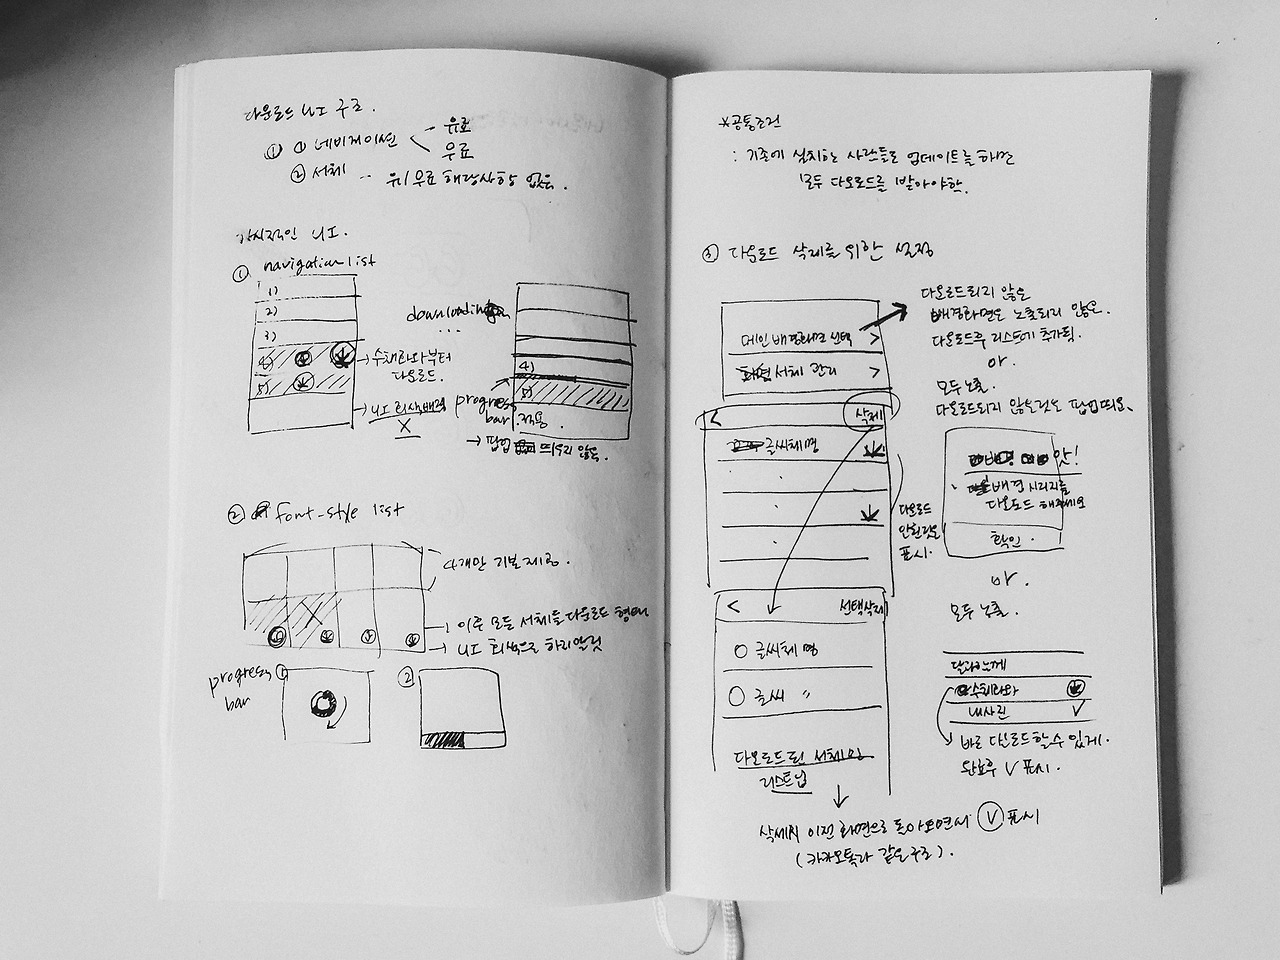 다운로드 UI 구조.
① ① 네비게이션 유료
무료
② 서체 -- 유/무료 해당사항 없음.
UI.
① navigation list
1)
2)
3)
4)
5)
→ 수채화부터
다운로드.
→ UI 회색배경
X
downloading
...
4)
5)
적용.
progress
bar
→ 팝업 띄우지 않음.
② font-style list
4개만 기본제공.
이후 모든 서체들 다운로드 형태
→ UI 회색으로 처리할것
progress
bar
①
②
*공통조건
: 기존에 설치하는 사람들도 업데이트를 하면
모두 다운로드를 받아야함.
③ 다운로드 삭제를 위한 설정
메인 배경화면 선택 >
서체 관리 >
다운로드되지 않은
배경화면은 노출되지 않음.
다운로드후 리스트에 추가됨.
or.
모두 노출.
다운로드되지 않은것은 팝업띄움.
< 삭제
글씨체명
다운로드
안된것은
표시.
앗!
배경 시리즈를
다운로드 해주세요
확인.
or.
모두 노출.
< 선택삭제
○ 글씨체명
○ 글씨 〃
다운로드된 서체만
리스트업
달과 함께
수채화와
내사진 ✓
바로 다운로드할 수 있게.
완료후 V 표시.
삭제시 이전 화면으로 돌아오면서 Ⓥ 표시
(카카오톡과 같은구조).